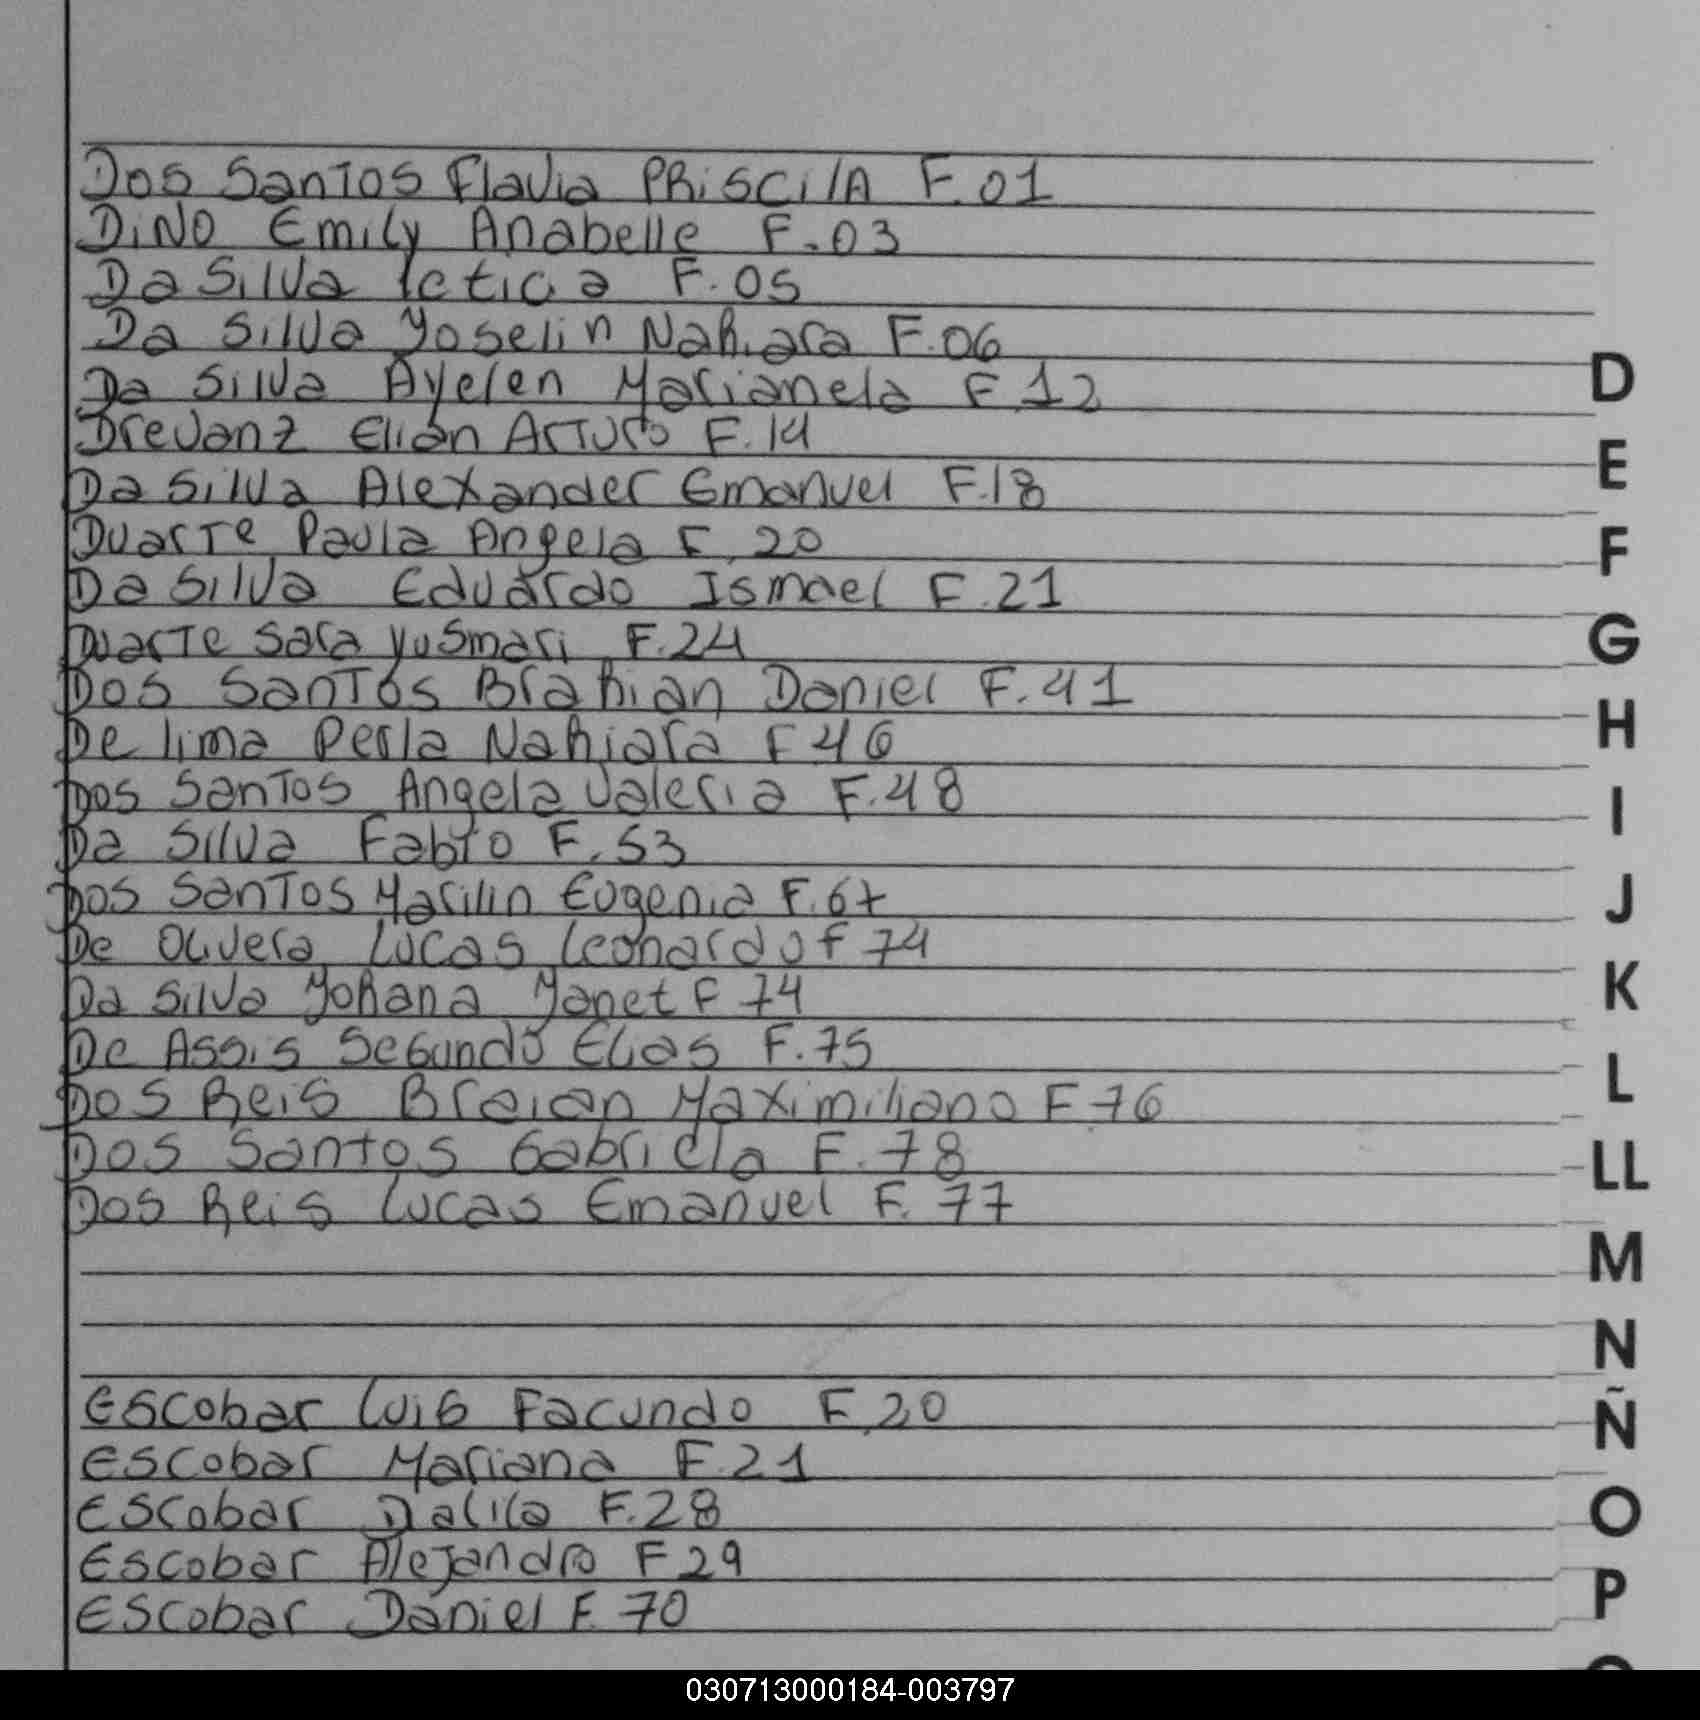 Dos Santos Flavia PRiSCilA F.01
DiNO Emily Anabelle F.03
Da Silva leticia F.05
Da Silva Yoselin Nahiara F.06
Da Silva Ayelen Marianela F.12
Drevanz Elian Arturo F.14
Da Silva Alexander Emanuel F.18
Duarte Paula Angela F.20
Da Silva Eduardo Ismael F.21
Duarte Sara Yusmari F.24
Dos Santos Brahian Daniel F.41
De lima Perla Nahiara F 46
Dos Santos Angela Valeria F.48
Da Silva Fabio F.53
Dos Santos Marilin Eugenia F.67
De Olivera Lucas Leonardo F 74
Da Silva Yohana Yanet F 74
De Assis Segundo Elias F.75
Dos Reis Braian Maximiliano F.76
Dos Santos Gabriela F.78
Dos Reis Lucas Emanuel F.77
Escobar Luis Facundo F.20
Escobar Mariana F.21
Escobar Dalila F.28
Escobar Alejandro F 29
Escobar Daniel F.70
D
E
F
G
H
I
J
K
L
LL
M
N
Ñ
O
P
030713000184-003797